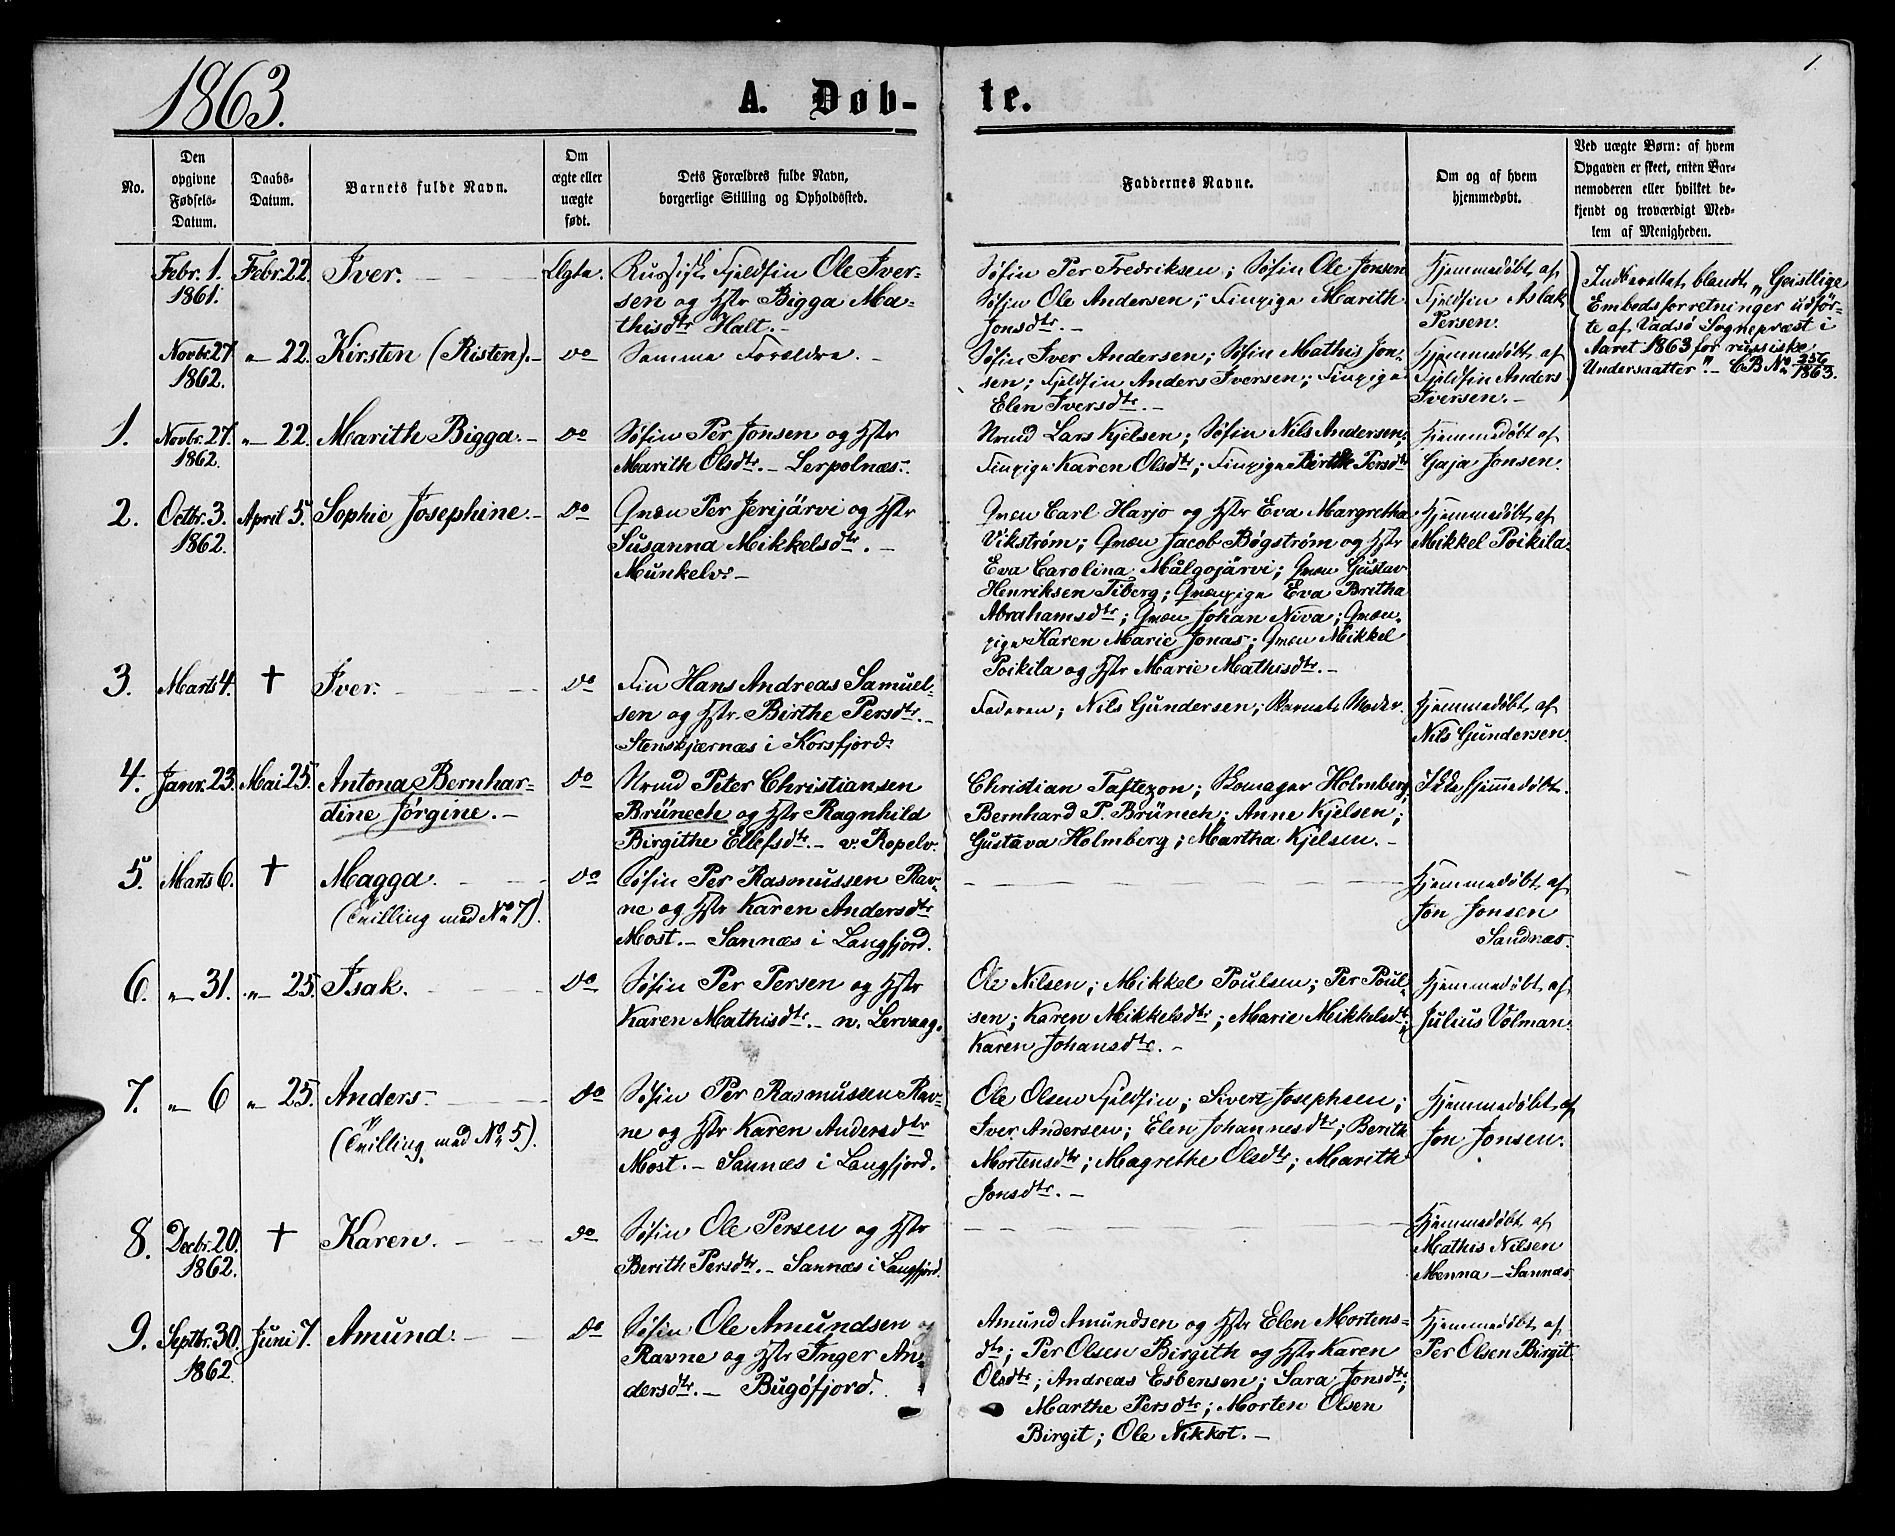 1863.
A. Døb-
te.
1.
No.
Den
opgivne
Fødsels-
Datum.
Daabs-
Datum.
Barnets fulde Navn.
Om
ægte eller
uægte
født.
Dets Forældres fulde Navn,
borgerlige Stilling og Opholdssted.
Faddernes Navne.
Om og af hvem
hjemmedøbt.
Ved uægte Børn: af hvem
Opgaven er skeet, enten Bar-
nemoderen eller hvilket be-
kjendt og troværdigt Med-
lem af Menigheden.
Febr. 1.
1861.
Febr. 22.
Iver.
Ægte.
Russisk Fjeldfin Ole Iver-
sen og Hstr Bigga Ma-
thisdtr Halt. -
Søfin Per Fredriksen; Søfin Ole Jonsen
Søfin Ole Andersen; Finpige Marith
Jonsdtr. -
Hjemmedøbt af
Fjeldfin Aslak
Persen.
Indberettet blandt "Geistlige
Embedsforretninger udfør-
te af Vadsø Sognepræst i
Aaret 1863 for russiske
Undersaatter". - CB No 256
1863.
Novbr. 27
1862.
" 22.
Kirsten (Risten). -
do
Samme Forældre. -
Søfin Iver Andersen; Søfin Mathis Jon-
sen; Fjeldfin Anders Iversen; Finpige
Elen Iversdtr. -
Hjemmedøbt af
Fjeldfin Anders
Iversen. -
1.
Novbr. 27.
1862.
" 22.
Marith Bigga. -
do
Søfin Per Jonsen og Hstr
Marith Olsdtr. - Lerpolnæs.
Nrmd Lars Kjelsen; Søfin Nils Andersen;
Finpige Karen Olsdtr; Finpige Birthe Persdtr
Hjemmedøbt af
Gaja Jonsen.
2.
Octbr. 3.
1862.
April 5.
Sophie Josephine. -
do
Qvæn Per Jerijärvi og Hstr
Susanna Mikkelsdtr. -
Munkelv. -
Qvæn Carl Harjo og Hstr Eva Margretha
Vikstrøm; Qvæn Jacob Bøgstrøm og Hstr
Eva Carolina Målgojärvi; Qvæn Gustav
Henriksen Tiberg; Qvænpige Eva Britha
Abrahamsdtr; Qvæn Johan Niva; Qvæn-
pige Karen Marie Jonas; Qvæn Mikkel
Poikila og Hstr Marie Mathisdtr. -
Hjemmedøbt af
Mikkel Poikila.
3.
Marts 4.
†
Iver.
do
Fin Hans Andreas Samuel-
sen og Hstr. Birthe Persdtr. -
Stenskjærnæs i Korsfjord.
Faderen; Nils Gundersen; Barnets Moder.
Hjemmedøbt af
Nils Gundersen.
4.
Janr. 23.
Mai 25.
Antona Bernhar-
dine Jørgine. -
do
Nrmd Peter Christiansen
Brünech og Hstr Ragnhild
Birgithe Ellefsdtr. - v. Ropelv.
Christian Taftezon; Skomager Holmberg;
Bernhard P. Brünech; Anne Kjelsen;
Gustava Holmberg; Martha Kjelsen. -
Ikke hjemmedøbt.
5.
Marts 6.
†
Magga.
(Tvilling med No 7).
do
Søfin Per Rasmussen Rav-
ne og Hstr Karen Andersdtr
Most. - Sannæs i Langfjord.
Hjemmedøbt af
Jon Jonsen
Sandnæs.
6.
" 31.
" 25.
Isak.
do
Søfin Per Persen og Hstr
Karen Mathisdtr. - n. Lervaag.
Ole Nilsen; Mikkel Poulsen; Per Poul-
sen; Karen Mikkelsdtr; Marie Mikkelsdtr;
Karen Johansdtr. -
Hjemmedøbt af
Julius Volman.
7.
" 6
" 25.
Anders.
(Tvilling med No 5).
do
Søfin Per Rasmussen Rav-
ne og Hstr Karen Andersdtr
Most. - Sannæs i Langfjord.
Ole Olsen Fjeldfin; Sivert Josephsen;
Iver Andersen; Elen Johannesdtr; Berith
Mortensdtr; Magrethe Olsdtr; Marith
Jonsdtr. -
Hjemmedøbt af
Jon Jonsen.
8.
Decbr. 20.
1862.
†
Karen.
do
Søfin Ole Persen og Hstr
Berith Persdtr. - Sannæs i Langfjord.
Hjemmedøbt af
Mathis Nilsen
Menna - Sannæs
9.
Septbr. 30.
1862.
Juni 7.
Amund.
do
Søfin Ole Amundsen og
Ravne og Hstr Inger An-
dersdtr. - Bugøfjord.
Amund Amundsen og Hstr Elen Mortens-
dtr; Per Olsen Birgith og Hstr Karen
Olsdtr; Andreas Esbensen; Sara Jonsdtr;
Marthe Persdtr; Morten Olsen
Birgit; Ole Nikkot. -
Hjemmedøbt af
Per Olsen Birgit